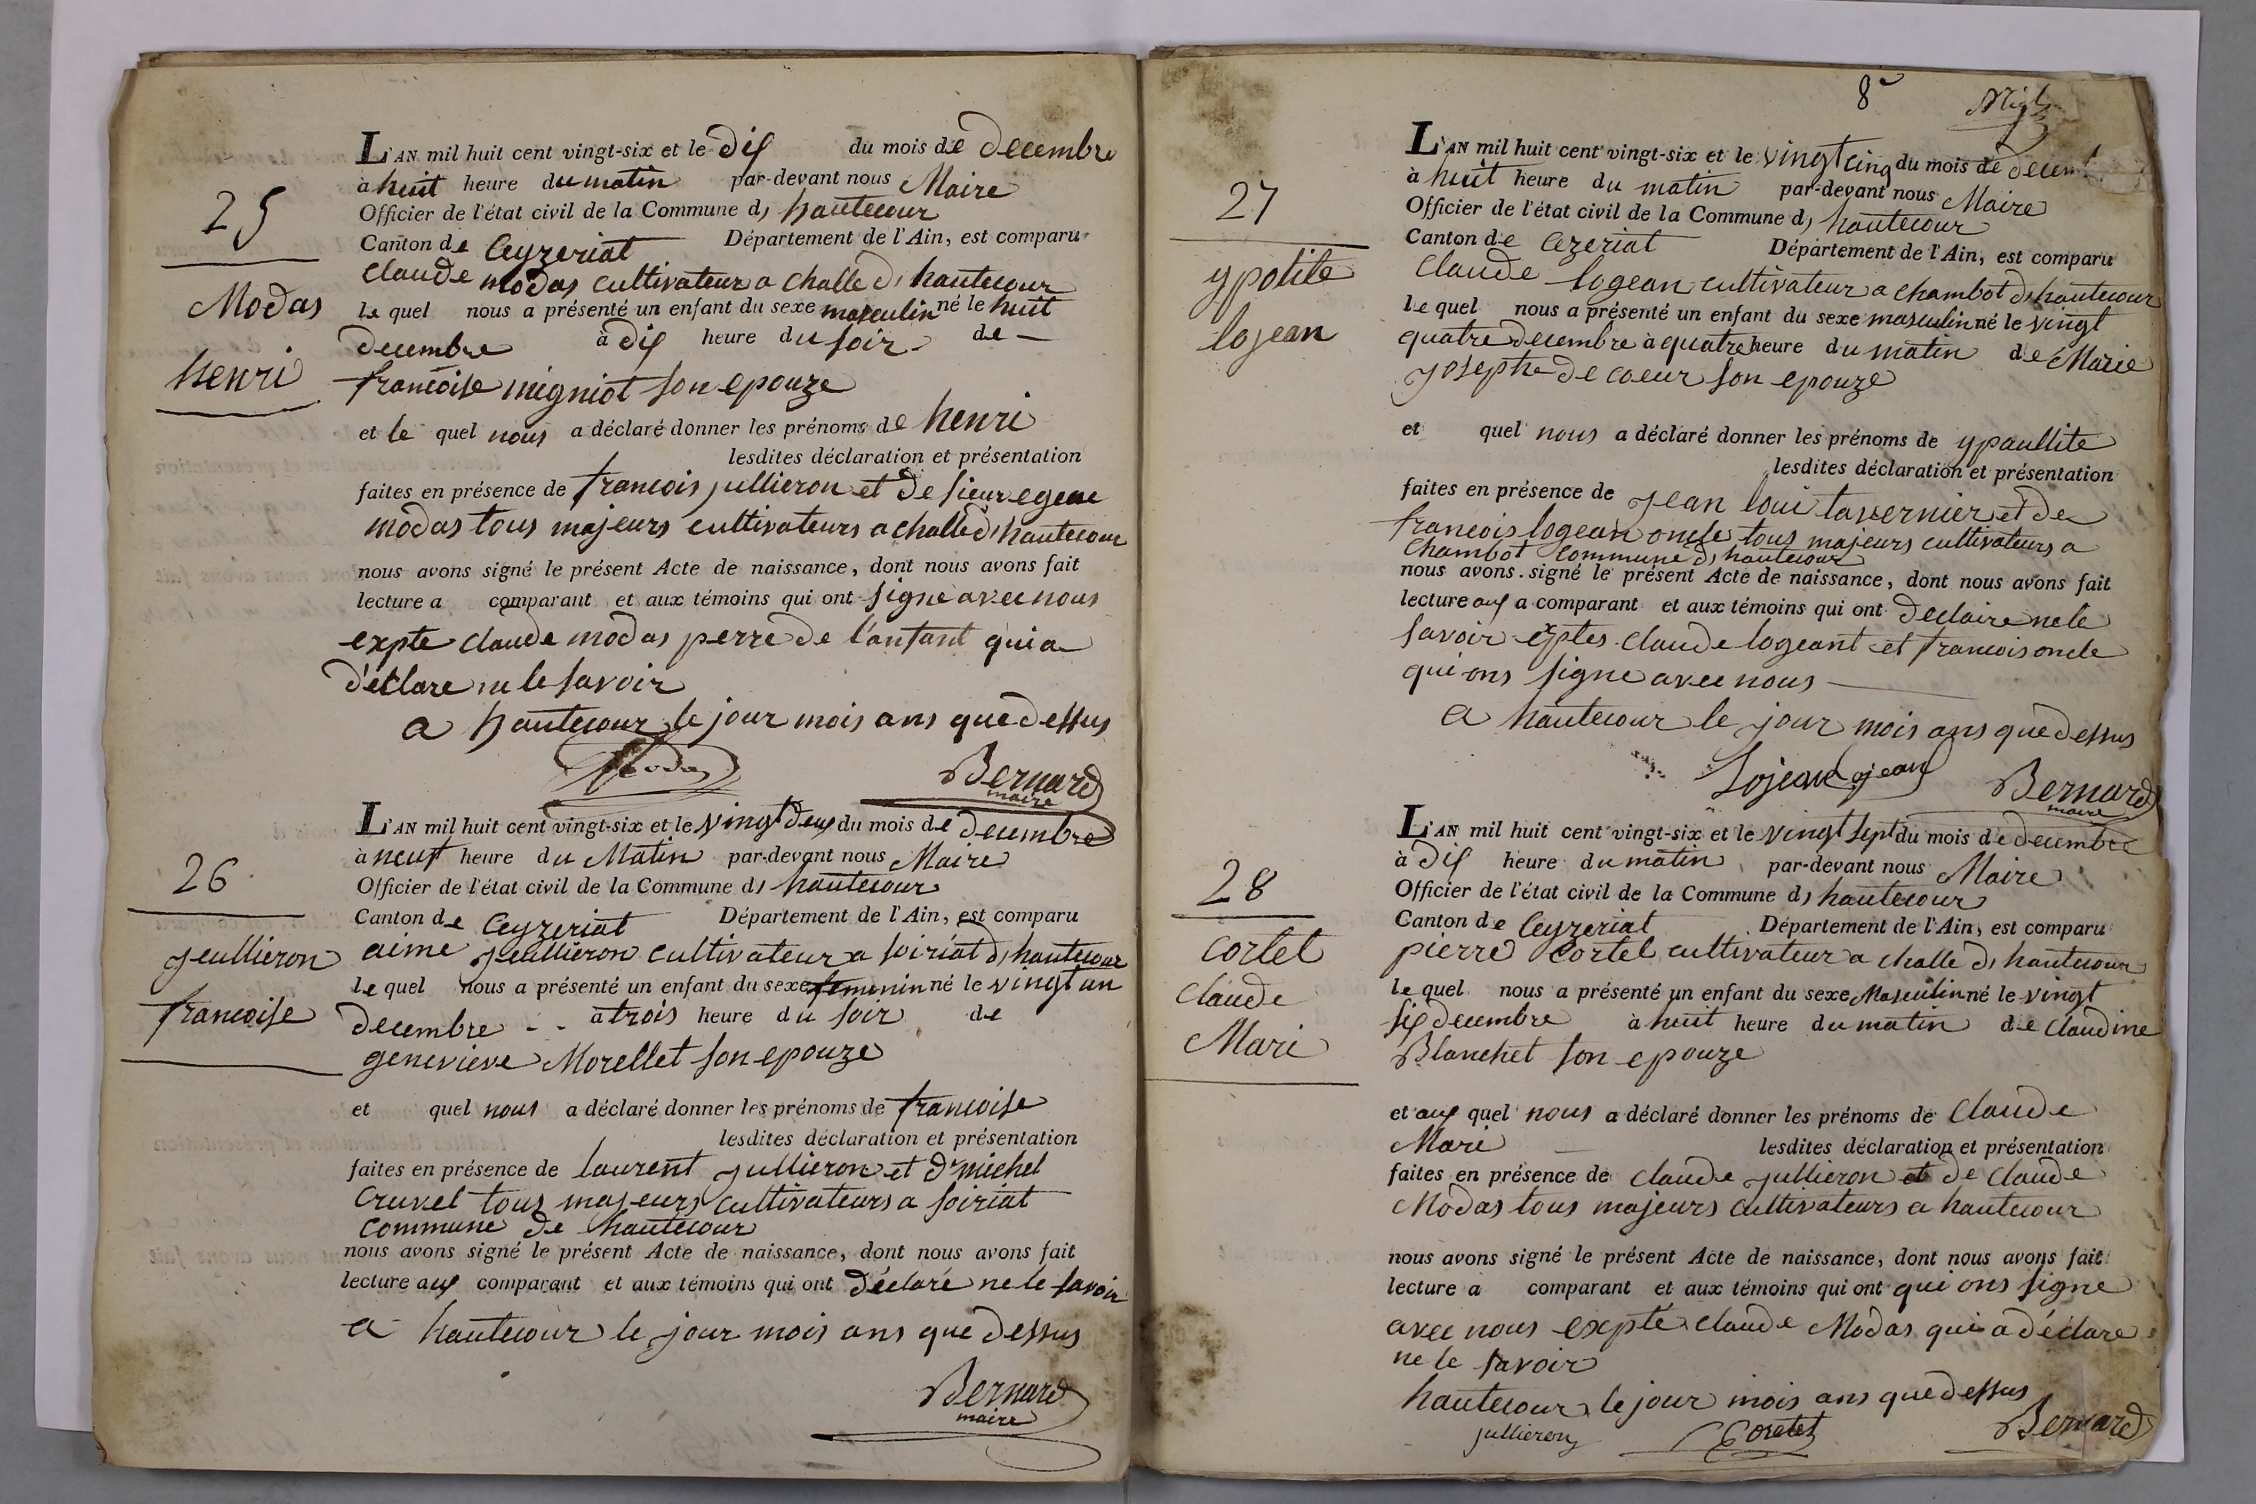 25
Modas
henri
L'AN mil huit cent vingt-six et le dix du mois de decembre
à huit heure du matin par-devant nous Maire
Officier de l'état civil de la Commune d, hautecour
Canton de Ceyzeriat Département de l'Ain, est comparu
claude modas cultivateur a challe d, hautecour
le quel nous a présenté un enfant du sexe masculin né le huit
decembre à dix heure du soir de —
francoise migniot son epouze
et le quel nous a déclaré donner les prénoms de henri
lesdites déclaration et présentation
faites en présence de francois jullieron et de sieur egene
modas tous majeurs cultivateurs a challe d, hautecour
nous avons signé le présent Acte de naissance, dont nous avons fait
lecture a comparant et aux témoins qui ont signe avec nous
expte claude modas perre de l'anfant qui a
déclare ne le savoir
a hautecour le jour mois ans que dessus
Modas Bernard
maire
26
jeullieron
francoise
L'AN mil huit cent vingt-six et le vingt deux du mois de decembre
à neuf heure du Matin par-devant nous Maire
Officier de l'état civil de la Commune d, hautecour
Canton de Ceyzeriat Département de l'Ain, est comparu
aime jeullieron cultivateur a soiriat d, hautecour
le quel nous a présenté un enfant du sexe feminin né le vingt un
decembre - - à trois heure du soir de
genevieve Morellet son epouze
et quel nous a déclaré donner les prénoms de francoise
lesdites déclaration et présentation
faites en présence de laurent jullieron et d michel
cruvel tous majeurs cultivateurs a soiriat
commune de hautecour
nous avons signé le présent Acte de naissance, dont nous avons fait
lecture aux comparant et aux témoins qui ont déclaré ne le savoir
a hautecour le jour mois ans que dessus
Bernard
maire
8
27
ypolite
lojean
L'AN mil huit cent vingt-six et le vingt cinq du mois de decem
à huit heure du matin par-devant nous Maire
Officier de l'état civil de la Commune d, hautecour
Canton de Cezeriat Département de l'Ain, est comparu
claude logean cultivateur a chambot d, hautecour
le quel nous a présenté un enfant du sexe masculin né le vingt
quatre decembre à quatre heure du matin de Marie
josephe de coeur son epouze
et quel nous a déclaré donner les prénoms de ypaullite
lesdites déclaration et présentation
faites en présence de jean loui tavernier et de
francois logean oncle tous majeurs cultivateurs a
chambot commune d, hautecour
nous avons signé le présent Acte de naissance, dont nous avons fait
lecture aux a comparant et aux témoins qui ont declaire ne le
savoir exptes claude logeant et francois oncle
qui ons signe avec nous —
a hautecour le jour mois ans que dessus
Lojean lojean Bernard
maire
28
cortel
claude
Mari
L'AN mil huit cent vingt-six et le vingt sept du mois de decembre
à dix heure du matin par-devant nous Maire
Officier de l'état civil de la Commune d, hautecour
Canton de Ceyzeriat Département de l'Ain, est comparu
pierre Cortel cultivateur a challe d, hautecour
le quel nous a présenté un enfant du sexe Masculin né le vingt
six decembre à huit heure du matin de claudine
Blanchet son epouze
et aux quel nous a déclaré donner les prénoms de claude
Mari — lesdites déclaration et présentation
faites en présence de claude jullieron et de claude
Modas tous majeurs cultivateurs a hautecour
nous avons signé le présent Acte de naissance, dont nous avons fait
lecture a comparant et aux témoins qui ont qui ons signe
avec nous expté claude Modas qui a déclare
ne le savoir
hautecour le jour mois ans que dessus
jullieron Coretet Bernard